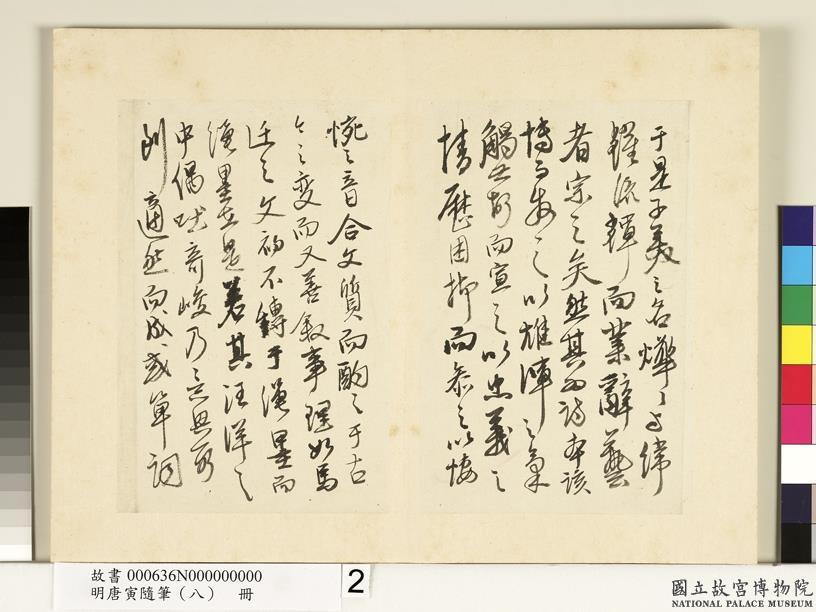 于是子美之名燁々與緯
耀流鐸而業辭藝
者宗之矣然其為詩本該
博而發之以雄渾之氣
觸忤而宣之以忠義之
情歷困抑而參之以悽
惋之音合文質而酌之于古
今之變而又善敘事理如馬
遷之文初不鑄于繩墨而
繩墨在是若其汪洋之
中偶吐奇峻乃意興所
到適然而成或單詞
故書 000636N000000000
明唐寅隨筆（八） 冊
2
國立故宮博物院
NATIONAL PALACE MUSEUM